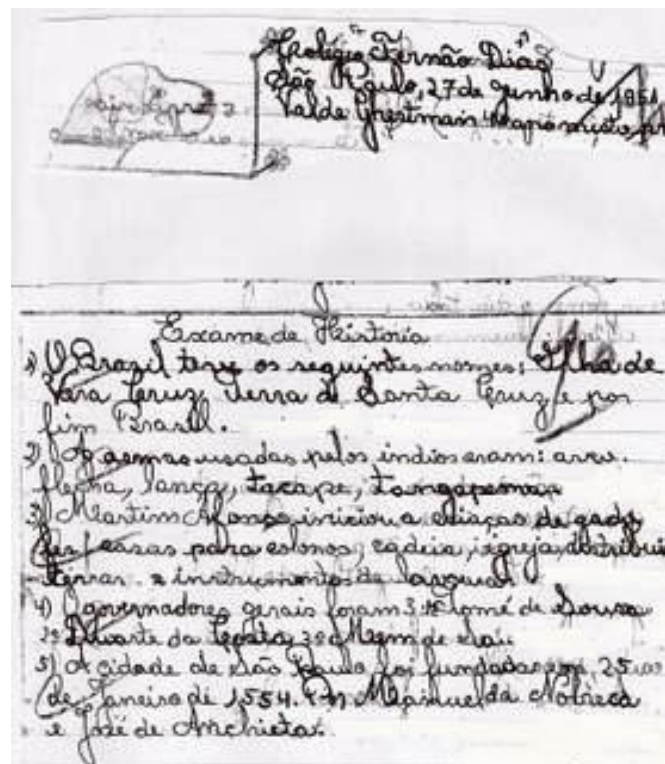 Colégio Fernão Dias
São Paulo, 27 de Junho de 1951
Valde
Exame de História
1) O Brazil teve os seguintes nomes: Ilha de
Vera Cruz, Terra de Santa Cruz e por
fim Brasil.
2) As armas usadas pelos indios eram: arco.
flecha, lança, tacape,
3) Martim Afonso, iniciou a criação de gado
fes casas para colonos, cadeia, igreja, distribuiu
terras e instrumentos de lavoura
4) Governadores gerais foram 3: 1º Tomé de Souza
2º Duarte da Costa, 3º Mem de Sá.
5) A cidade de São Paulo foi fundada em 25
de Janeiro de 1554. Por Manuel da Nobreca
e José de Anchieta.